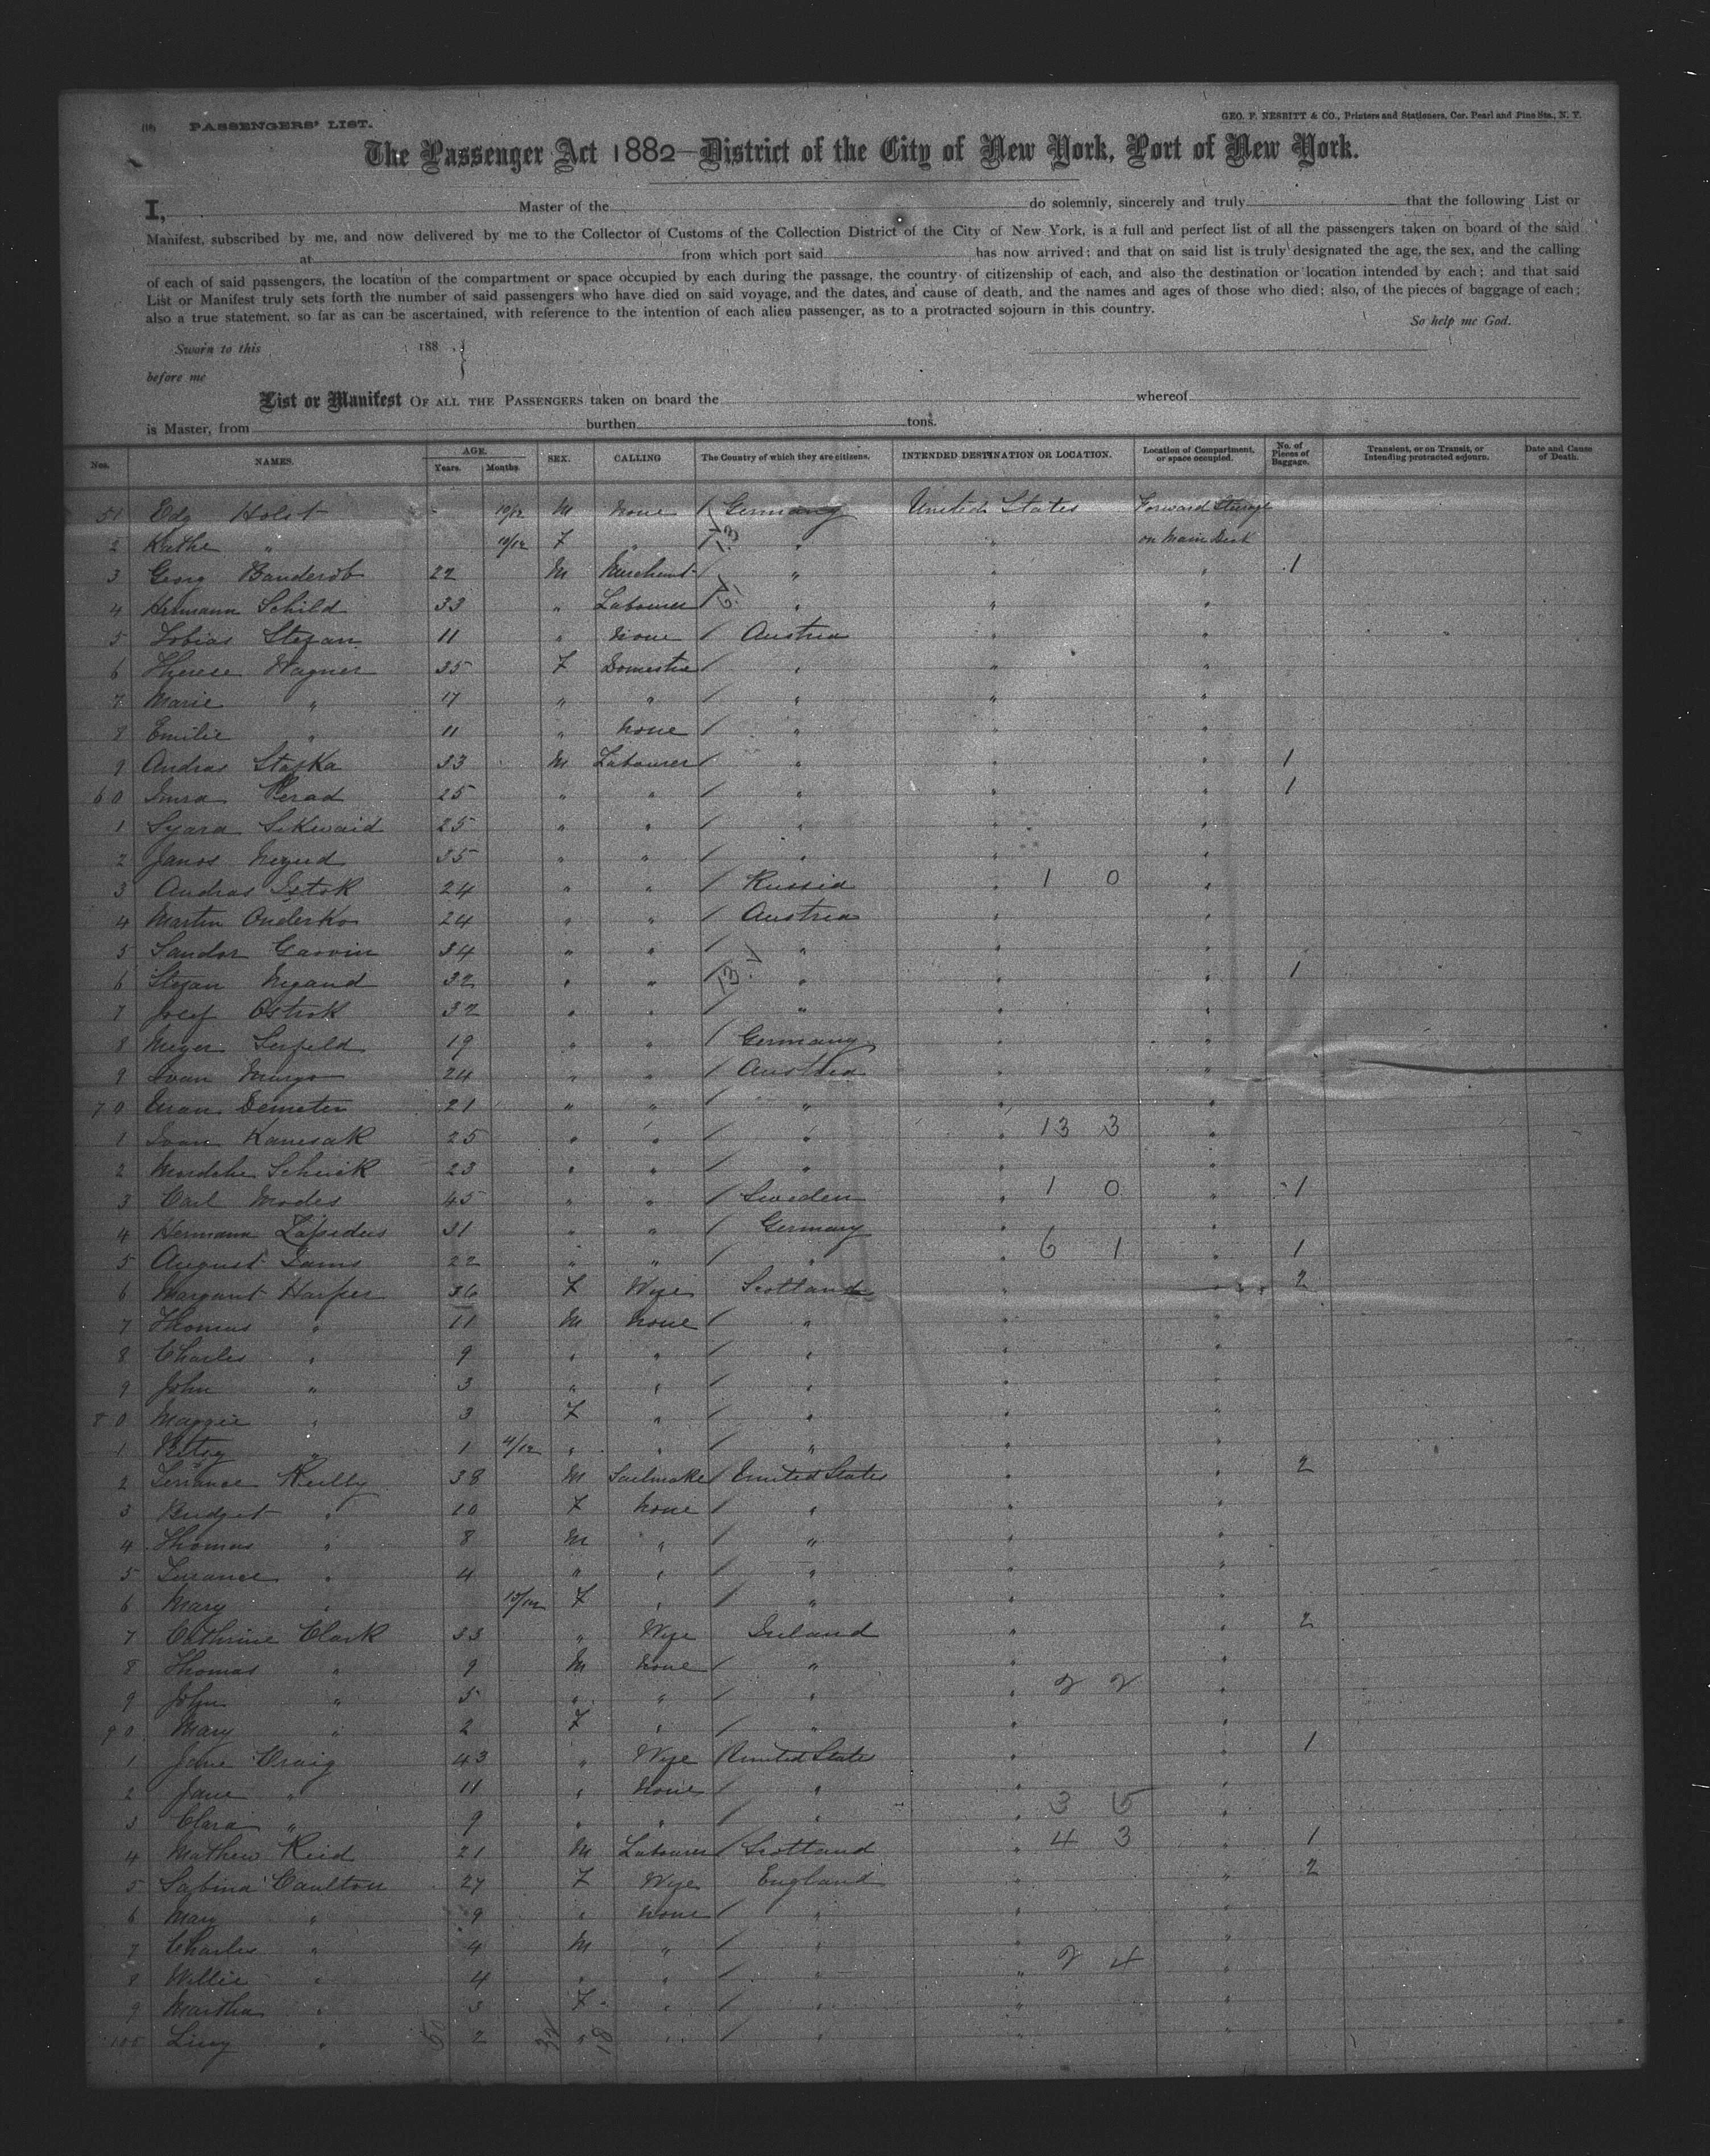 (18) PASSENGERS' LIST. GEO. F. NESBITT & CO., Printers and Stationers, Cor. Pearl and Pine Sts., N. Y.
The Passenger Act 1882—District of the City of New York, Port of New York.
I, Master of the do solemnly, sincerely and truly that the following List or
Manifest, subscribed by me, and now delivered by me to the Collector of Customs of the Collection District of the City of New York, is a full and perfect list of all the passengers taken on board of the said
at from which port said has now arrived; and that on said list is truly designated the age, the sex, and the calling
of each of said passengers, the location of the compartment or space occupied by each during the passage, the country of citizenship of each, and also the destination or location intended by each; and that said
List or Manifest truly sets forth the number of said passengers who have died on said voyage, and the dates, and cause of death, and the names and ages of those who died; also, of the pieces of baggage of each;
also a true statement, so far as can be ascertained, with reference to the intention of each alien passenger, as to a protracted sojourn in this country.
So help me God.
Sworn to this 188 . }
before me
List or Manifest OF ALL THE PASSENGERS taken on board the whereof
is Master, from burthen tons.
Nos. NAMES. AGE. Years. Months. SEX. CALLING The Country of which they are citizens. INTENDED DESTINATION OR LOCATION. Location of Compartment, or space occupied. No. of Pieces of Baggage. Transient, or on Transit, or Intending protracted sojourn. Date and Cause of Death.
51 Edg Holst - 10/12 M None / Germany United States Forward Steerage
2 Kathe " 10/12 F " / " " on Main Deck
3 Georg 22 M Merchant / " " " 1
4 Hermann Schild 33 " Labourer / " " "
5 Tobias Stefan 11 " None / Austria " "
6 Therese Wagner 35 F Domestic / " " "
7 Marie " 17 " " / " " "
8 Emilie " 11 " None / " " "
9 Andras Staska 33 M Labourer / " " " 1
60 25 " " / " " " 1
1 25 " " / " " "
2 Janos 35 " " / " " "
3 Andras 24 " " / Russia " 1 0 "
4 Martin Onderko 24 " " / Austria " "
5 Sandor 34 " " / " " "
6 Stefan 32 " " / " " " 1
7 Josef Ostrok 32 " " / " " "
8 Meyer 19 " " / Germany " "
9 Ivan 24 " " / Austria " "
70 Demeter 21 " " / " " "
1 Ivan 25 " " / " " 13 3 "
2 23 " " / " " "
3 Carl Modes 45 " " / Sweden " 1 0 " 1
4 Hermann Lapidus 31 " " / Germany " "
5 August 22 " " / " " 6 1 " 1
6 Margaret Harper 36 F Wife Scotland " " 2
7 Thomas " 11 M None / " " "
8 Charles " 9 " " / " " "
9 John " 3 " " / " " "
80 Maggie " 3 F " / " " "
1 Betsy " 1 4/12 " " / " " "
2 Terrance Reilly 38 M Sailmaker / United States " " 2
3 Bridget " 10 F None / " " "
4 Thomas " 8 M " / " " "
5 Terrance " 4 " " / " " "
6 Mary " F " / " " "
7 Cathrine Clark 33 " Wife Ireland " " 2
8 Thomas " 9 M None / " " "
9 John " 5 " " / " " 2 2 "
90 Mary " 2 F " / " " "
1 Jane Craig 43 " Wife / United States " " 1
2 Jane " 11 " None / " " "
3 Clara " 9 " " / " " 3 5 "
4 Mathew Reid 21 M Labourer / Scotland " 4 3 " 1
5 Sabina Caulton 27 F Wife England " " 2
6 Mary " 9 " None / " " "
7 Charles " 4 M " / " " "
8 Willie " 4 " " / " " 2 4 "
9 Martha " 3 F " / " " "
100 Lucy " 2 " " / " " "